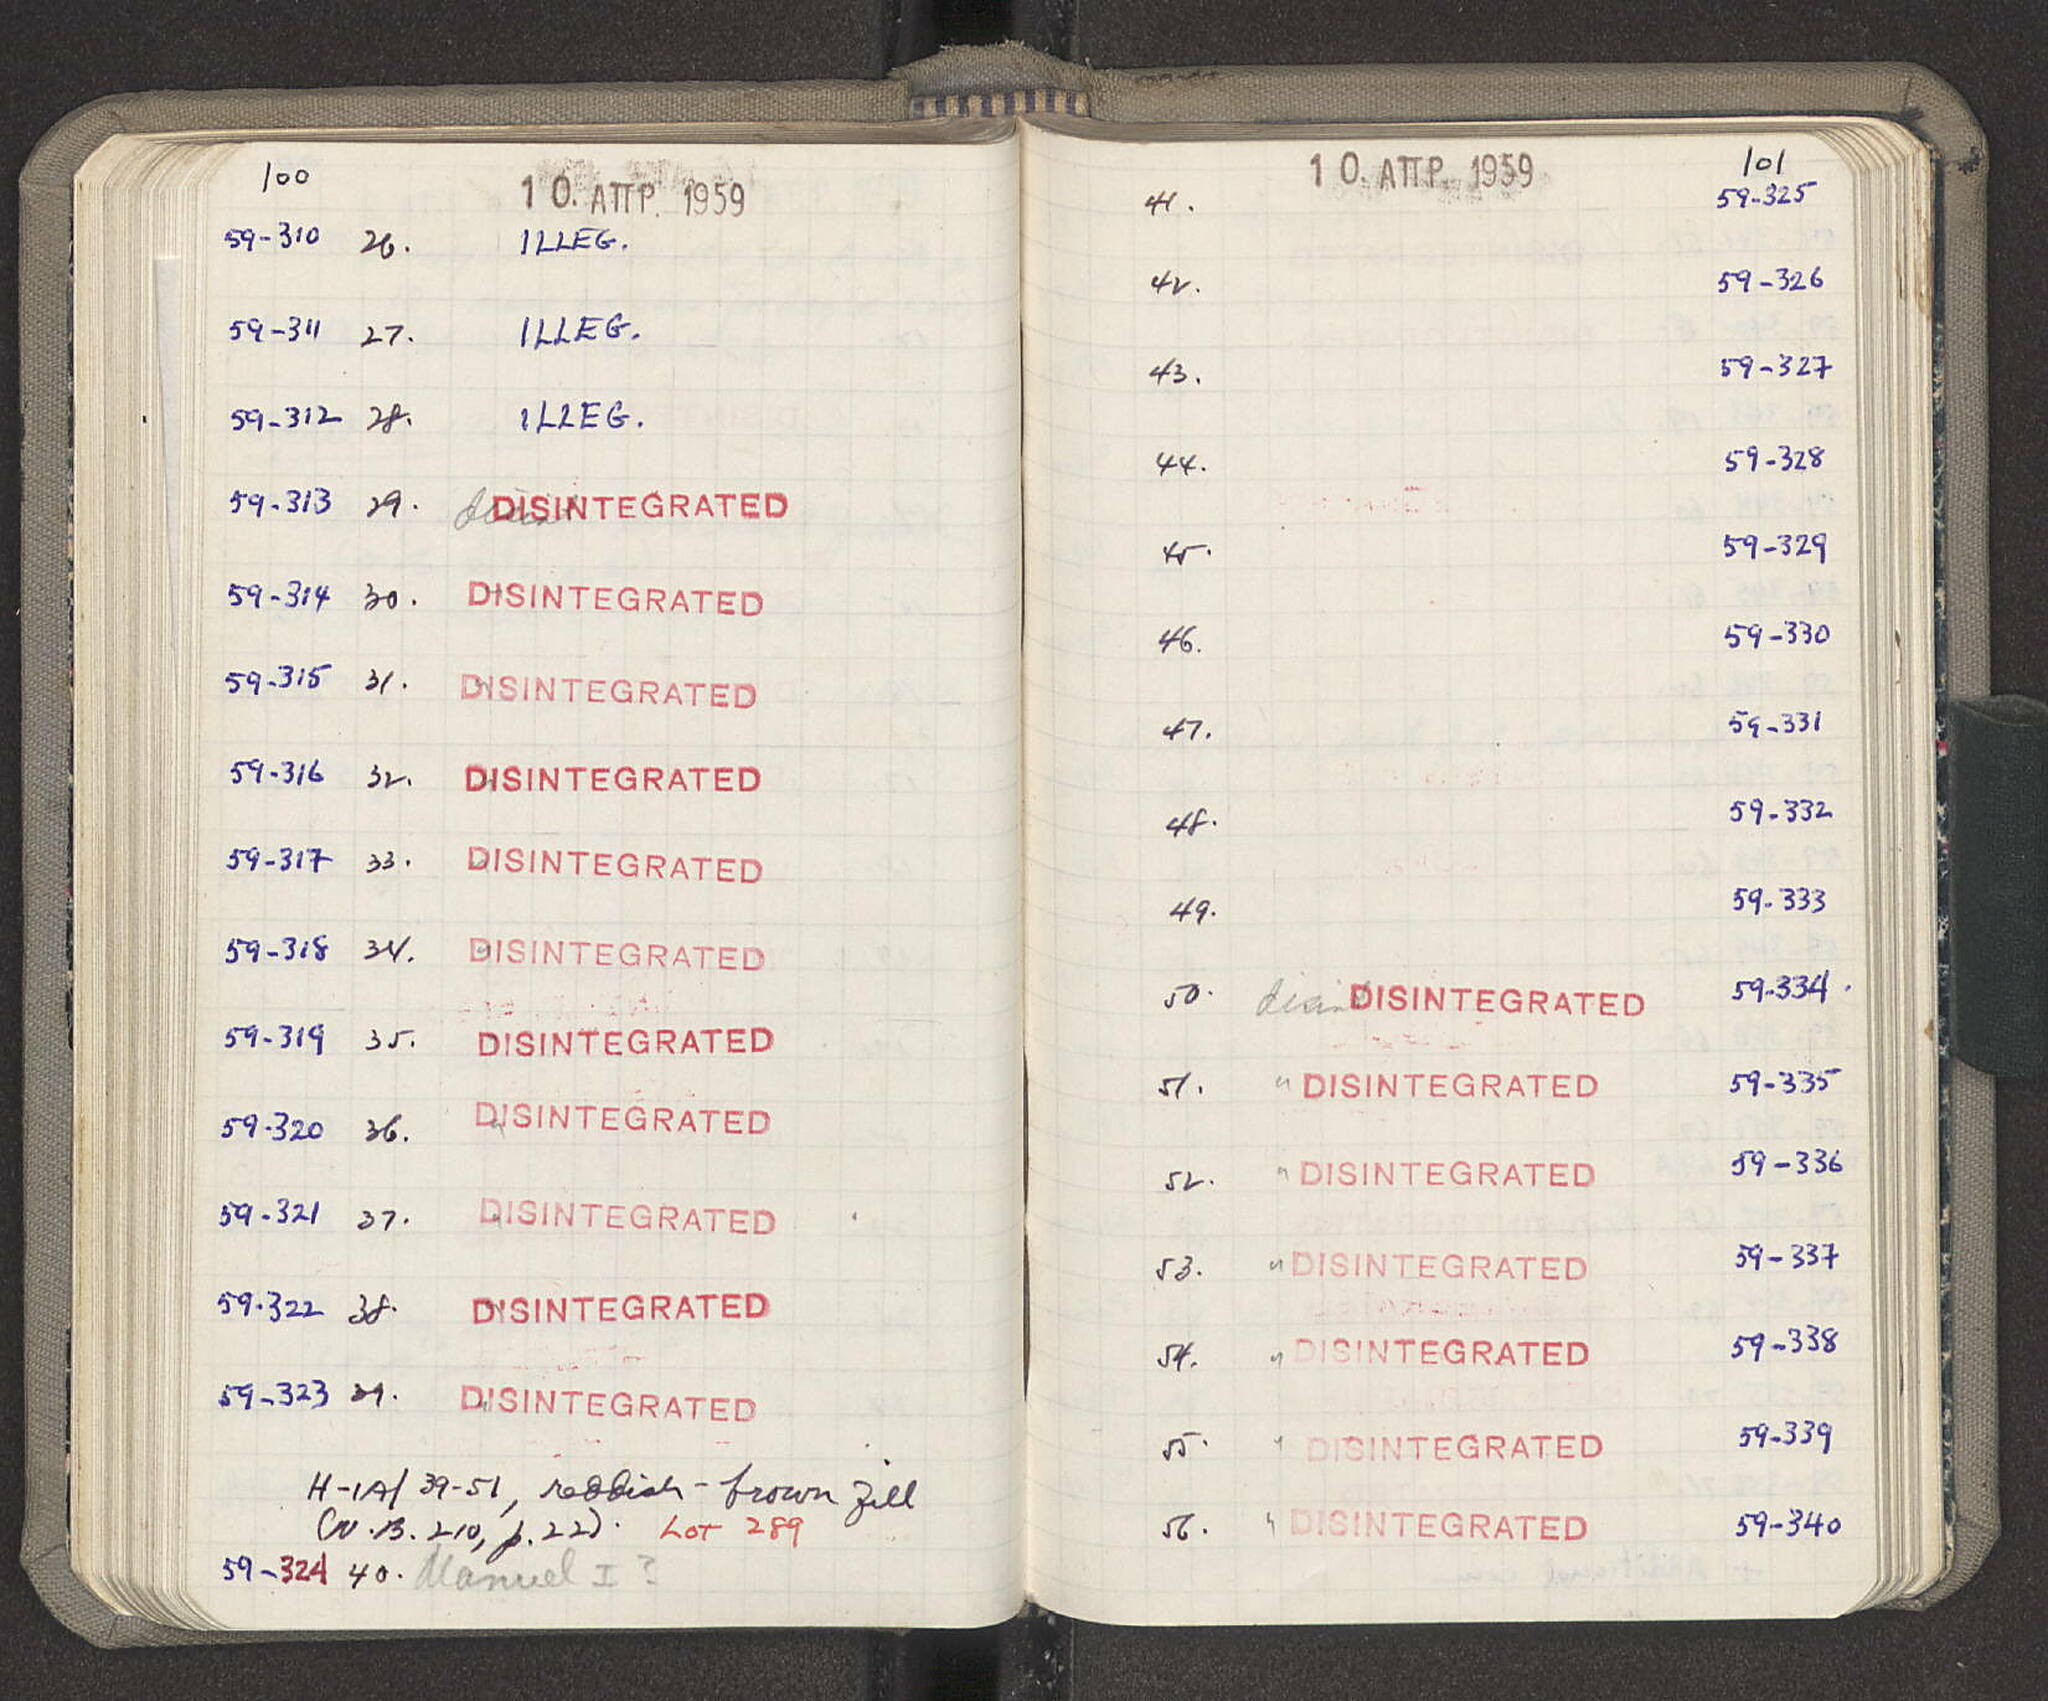 100
10. ΑΠΡ. 1959
59-310 26. ILLEG.
59-311 27. ILLEG.
59-312 28. ILLEG.
59-313 29. DISINTEGRATED
59-314 30. DISINTEGRATED
59-315 31. DISINTEGRATED
59-316 32. DISINTEGRATED
59-317 33. DISINTEGRATED
59-318 34. DISINTEGRATED
59-319 35. DISINTEGRATED
59-320 36. DISINTEGRATED
59-321 37. DISINTEGRATED
59-322 38. DISINTEGRATED
59-323 39. DISINTEGRATED
H-1A/ 39-51, reddish-brown fill
(N.B. 210, p. 22). Lot 289
59-324 40. Manuel I ?
10. ΑΠΡ. 1959 101
41. 59-325
42. 59-326
43. 59-327
44. 59-328
45. 59-329
46. 59-330
47. 59-331
48. 59-332
49. 59-333
50. DISINTEGRATED 59-334.
51. " DISINTEGRATED 59-335
52. " DISINTEGRATED 59-336
53. " DISINTEGRATED 59-337
54. " DISINTEGRATED 59-338
55. " DISINTEGRATED 59-339
56. " DISINTEGRATED 59-340